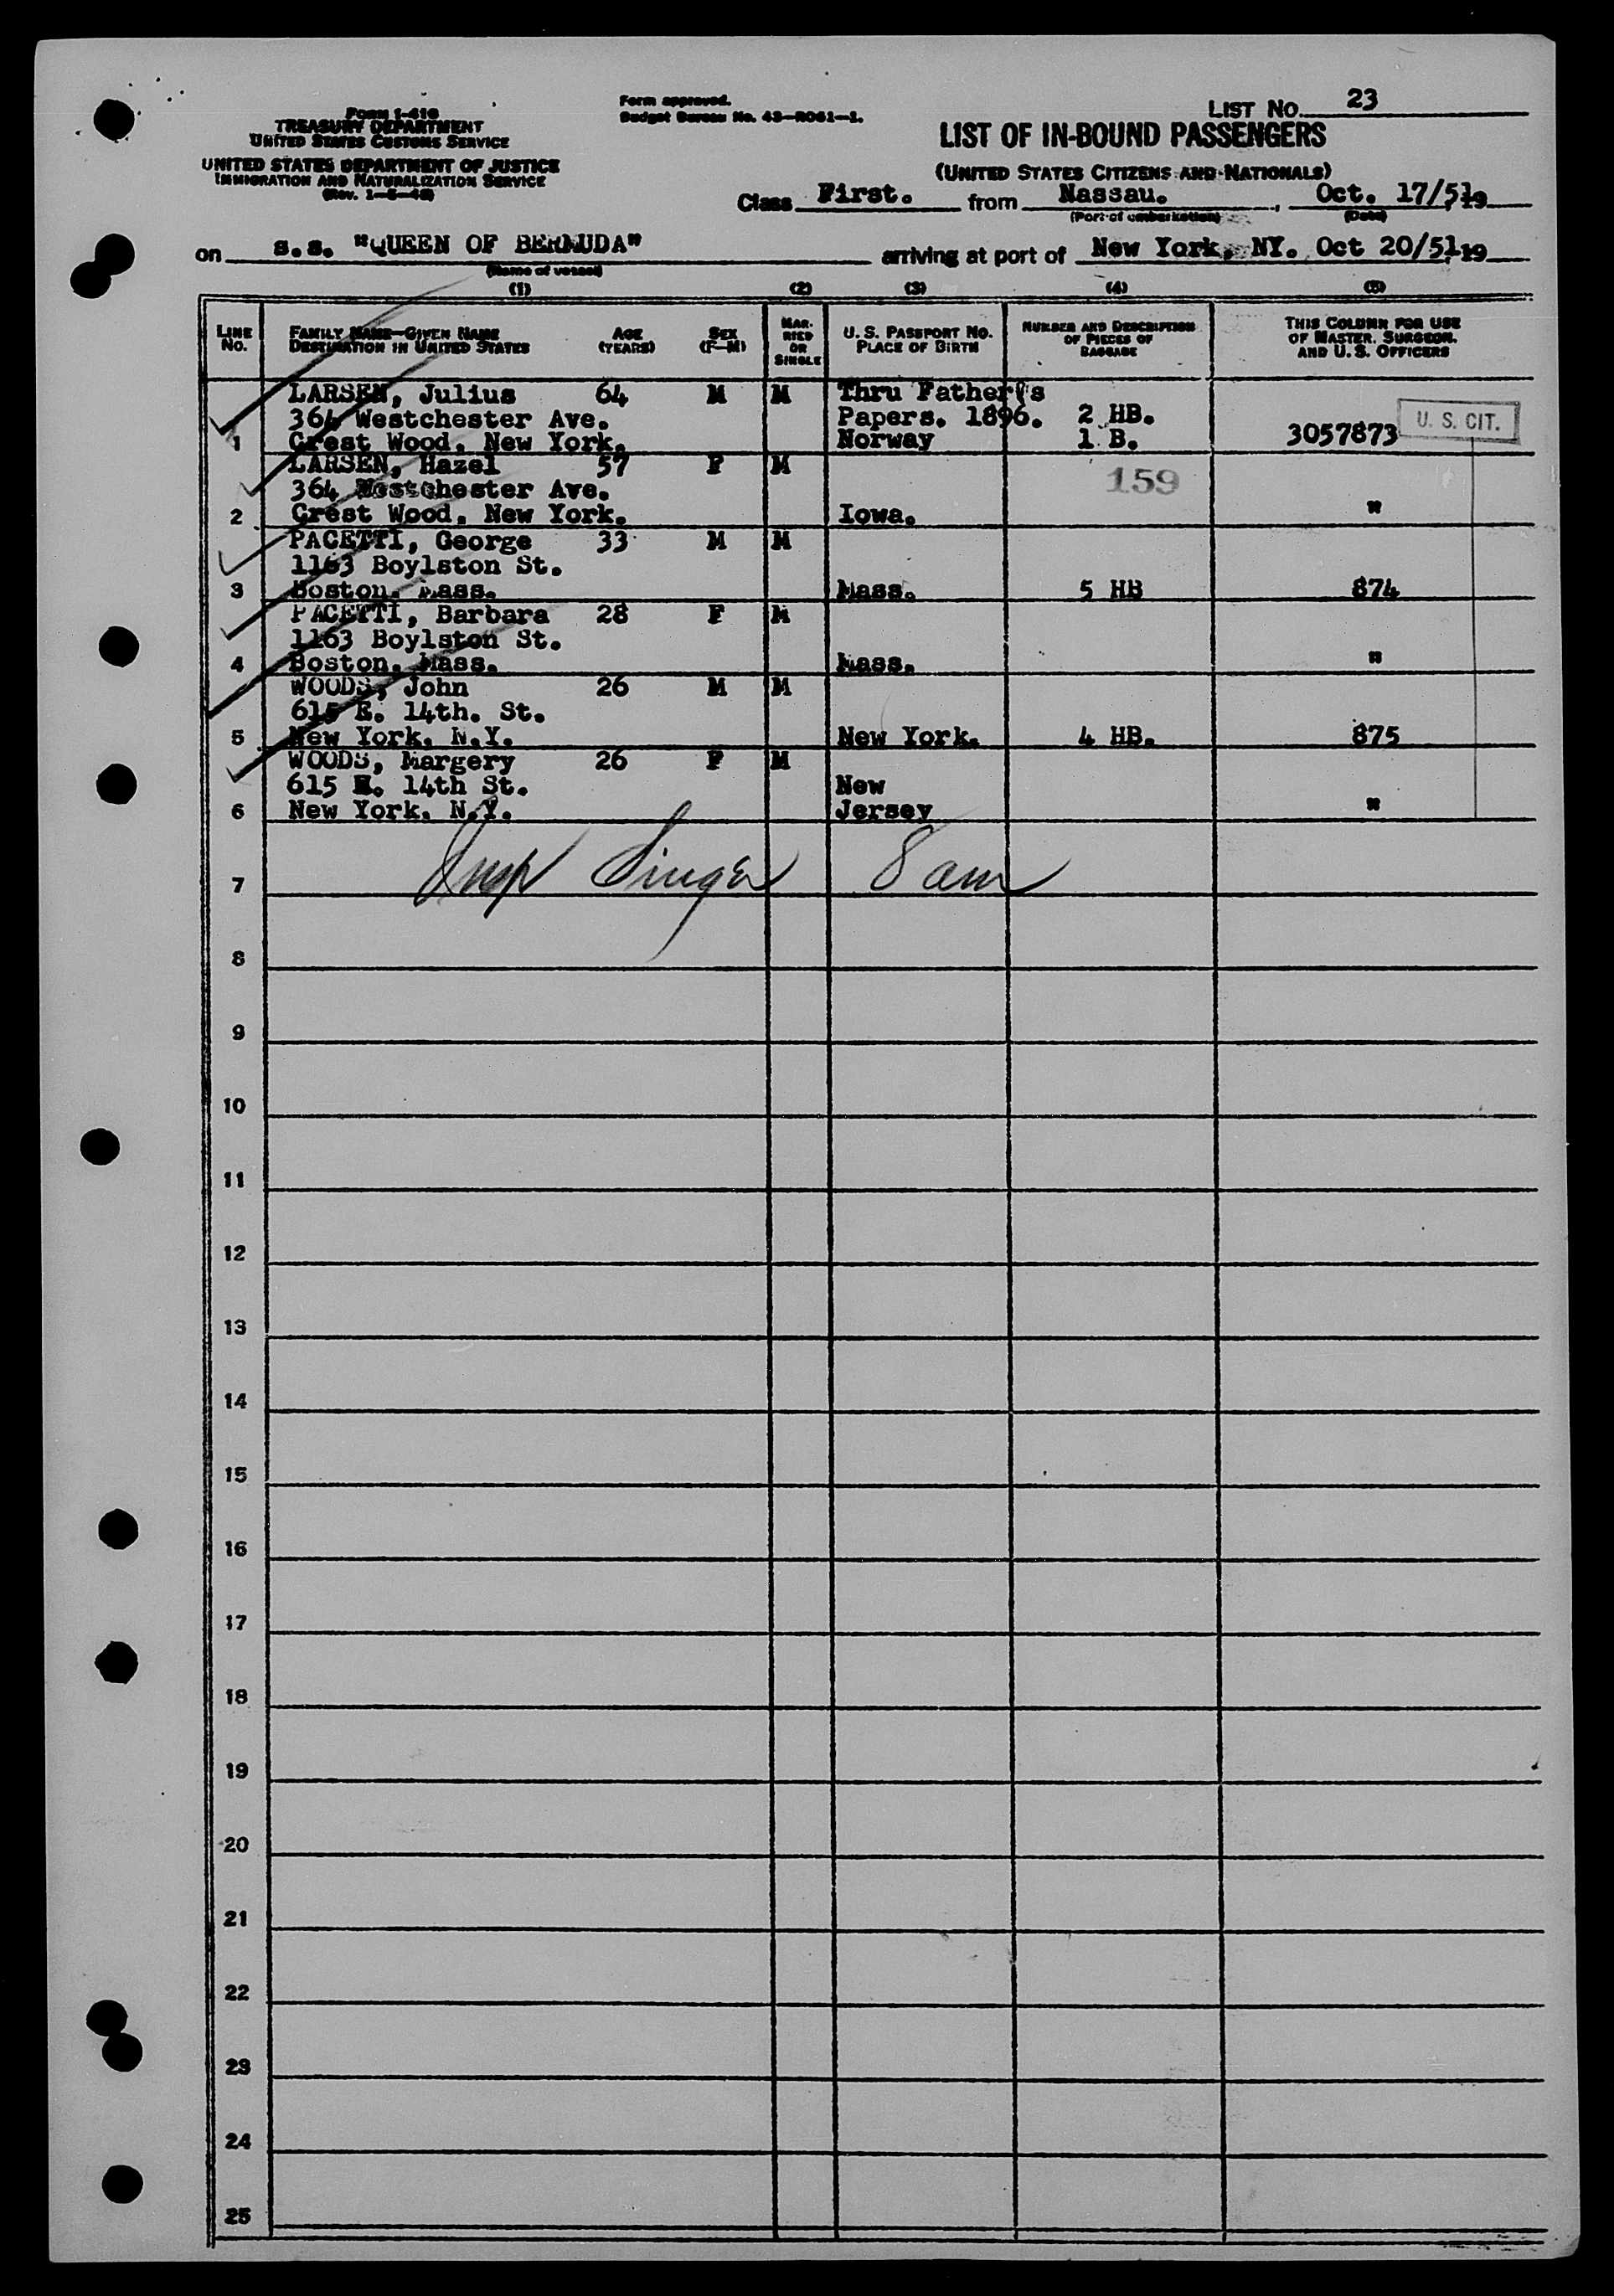 Form I-416
TREASURY DEPARTMENT
UNITED STATES CUSTOMS SERVICE
UNITED STATES DEPARTMENT OF JUSTICE
IMMIGRATION AND NATURALIZATION SERVICE
(Rev. 1-6-48)
Form approved.
Budget Bureau No. 43-R061-1.
LIST No. 23
LIST OF IN-BOUND PASSENGERS
(UNITED STATES CITIZENS AND NATIONALS)
Class First. from Nassau. , Oct. 17/51 19
(Port of embarkation) (Date)
on s.s. "QUEEN OF BERMUDA" arriving at port of New York, NY. Oct 20/51 19
(Name of vessel)
(1) (2) (3) (4) (5)
LINE No. FAMILY NAME—GIVEN NAME DESTINATION IN UNITED STATES AGE (YEARS) SEX (F-M) MARRIED OR SINGLE U. S. PASSPORT NO. PLACE OF BIRTH NUMBER AND DESCRIPTION OF PIECES OF BAGGAGE THIS COLUMN FOR USE OF MASTER, SURGEON, AND U. S. OFFICERS
LARSEN, Julius 64 M M Thru Father's
364 Westchester Ave. Papers. 1896. 2 HB. U. S. CIT.
1 Crest Wood, New York. Norway 1 B. 3057873
LARSEN, Hazel 57 F M
364 Westchester Ave. 159
2 Crest Wood, New York. Iowa. "
PACETTI, George 33 M M
1163 Boylston St.
3 Boston, Mass. Mass. 5 HB 874
PACETTI, Barbara 28 F M
1163 Boylston St.
4 Boston, Mass. Mass. "
WOODS, John 26 M M
615 E. 14th. St.
5 New York, N.Y. New York. 4 HB. 875
WOODS, Margery 26 F M
615 E. 14th St. New
6 New York, N.Y. Jersey "
Insp Singer 8 am
7
8
9
10
11
12
13
14
15
16
17
18
19
20
21
22
23
24
25